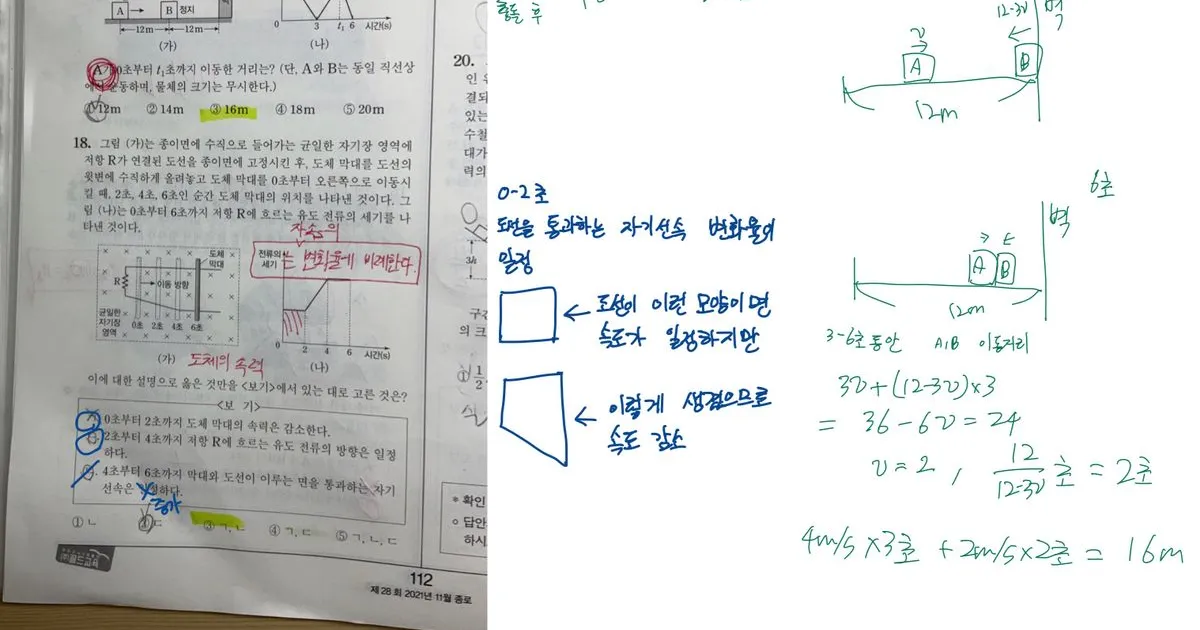 A
B 정지
12m
12m
(가)
0
3
t₁ 6
시간(s)
(나)
A가 0초부터 t₁초까지 이동한 거리는? (단, A와 B는 동일 직선상
에서 운동하며, 물체의 크기는 무시한다.)
① 12m ② 14m ③ 16m ④ 18m ⑤ 20m
18. 그림 (가)는 종이면에 수직으로 들어가는 균일한 자기장 영역에
저항 R가 연결된 도선을 종이면에 고정시킨 후, 도체 막대를 도선의
윗변에 수직하게 올려놓고 도체 막대를 0초부터 오른쪽으로 이동시
킬 때, 2초, 4초, 6초인 순간 도체 막대의 위치를 나타낸 것이다. 그
림 (나)는 0초부터 6초까지 저항 R에 흐르는 유도 전류의 세기를 나
타낸 것이다.
자속의
는 변화율에 비례한다.
도체
막대
R
이동 방향
균일한
자기장
영역
0초 2초 4초 6초
(가)
전류의
세기
0
2
4
6
시간(s)
(나)
도체의 속력
이에 대한 설명으로 옳은 것만을 <보기>에서 있는 대로 고른 것은?
<보 기>
ㄱ. 0초부터 2초까지 도체 막대의 속력은 감소한다.
ㄴ. 2초부터 4초까지 저항 R에 흐르는 유도 전류의 방향은 일정
하다.
ㄷ. 4초부터 6초까지 막대와 도선이 이루는 면을 통과하는 자기
선속은 일정하다.
증가
① ㄴ ② ㄷ ③ ㄱ, ㄴ ④ ㄱ, ㄷ ⑤ ㄱ, ㄴ, ㄷ
㈜골드교육
112
제 28 회 2021년 11월 종로
20.
인
결되
있는
수철
대가
력의
3h
구간
의 크
①
1
2
* 확인
○ 답안
하시
충돌 후
12-3v
벽
v
A
B
12m
0-2초
도선을 통과하는 자기선속 변화율이
일정
도선이 이런 모양이면
속도가 일정하지만
이렇게 생겼으므로
속도 감소
6초
벽
A
B
12m
3-6초 동안 A,B 이동거리
3v+(12-3v)×3
= 36-6v=24
v=2 , 12/12-3v 초 = 2초
4m/s ×3초 +2m/s×2초 = 16m